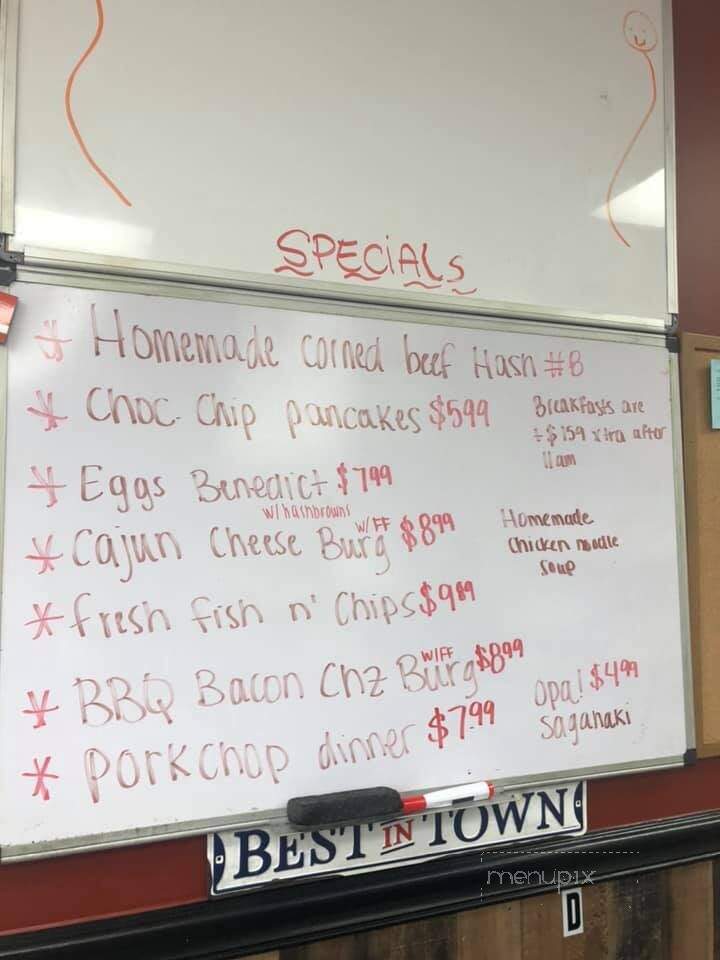 SPECIALS
* Homemade corned beef Hash #8
* Choc. Chip pancakes $5.99
Breakfasts are
+$1.59 xtra after
11am
* Eggs Benedict $7.99
w/hashbrowns
* Cajun Cheese Burg w/FF $8.99
Homemade
Chicken noodle
Soup
* fresh fish n' Chips $9.89
* BBQ Bacon Chz Burg w/FF $8.99
* Porkchop dinner $7.99
Opa! $4.99
Saganaki
BEST IN TOWN
menupix
D